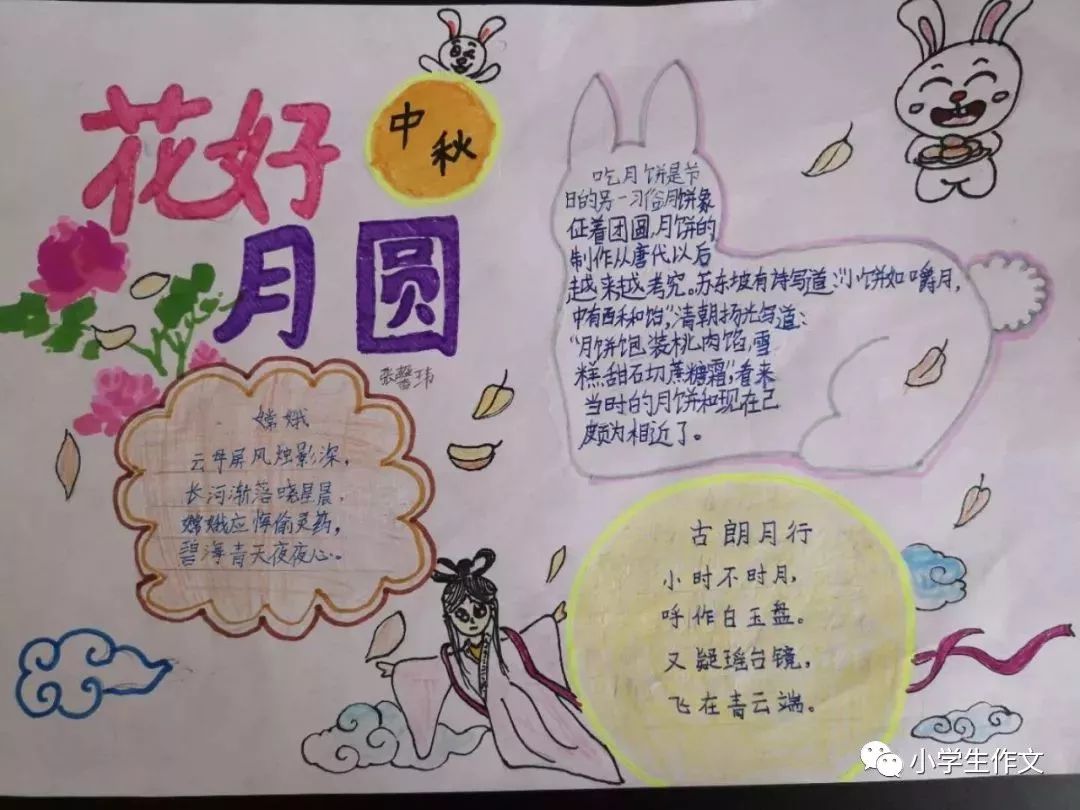 花好
月圆
中秋
张馨玮
嫦娥
云母屏风烛影深，
长河渐落晓星晨，
嫦娥应悔偷灵药，
碧海青天夜夜心。
吃月饼是节
日的另一习俗月饼象
征着团圆，月饼的
制作从唐代以后
越来越考究。苏东坡有诗写道：“小饼如嚼月，
中有酥和饴”，清朝扬光写道：
“月饼饱装桃肉馅，雪
糕甜石切蔗糖霜”，看来
当时的月饼和现在已
颇为相近了。
古朗月行
小时不时月，
呼作白玉盘。
又疑瑶台镜，
飞在青云端。
小学生作文